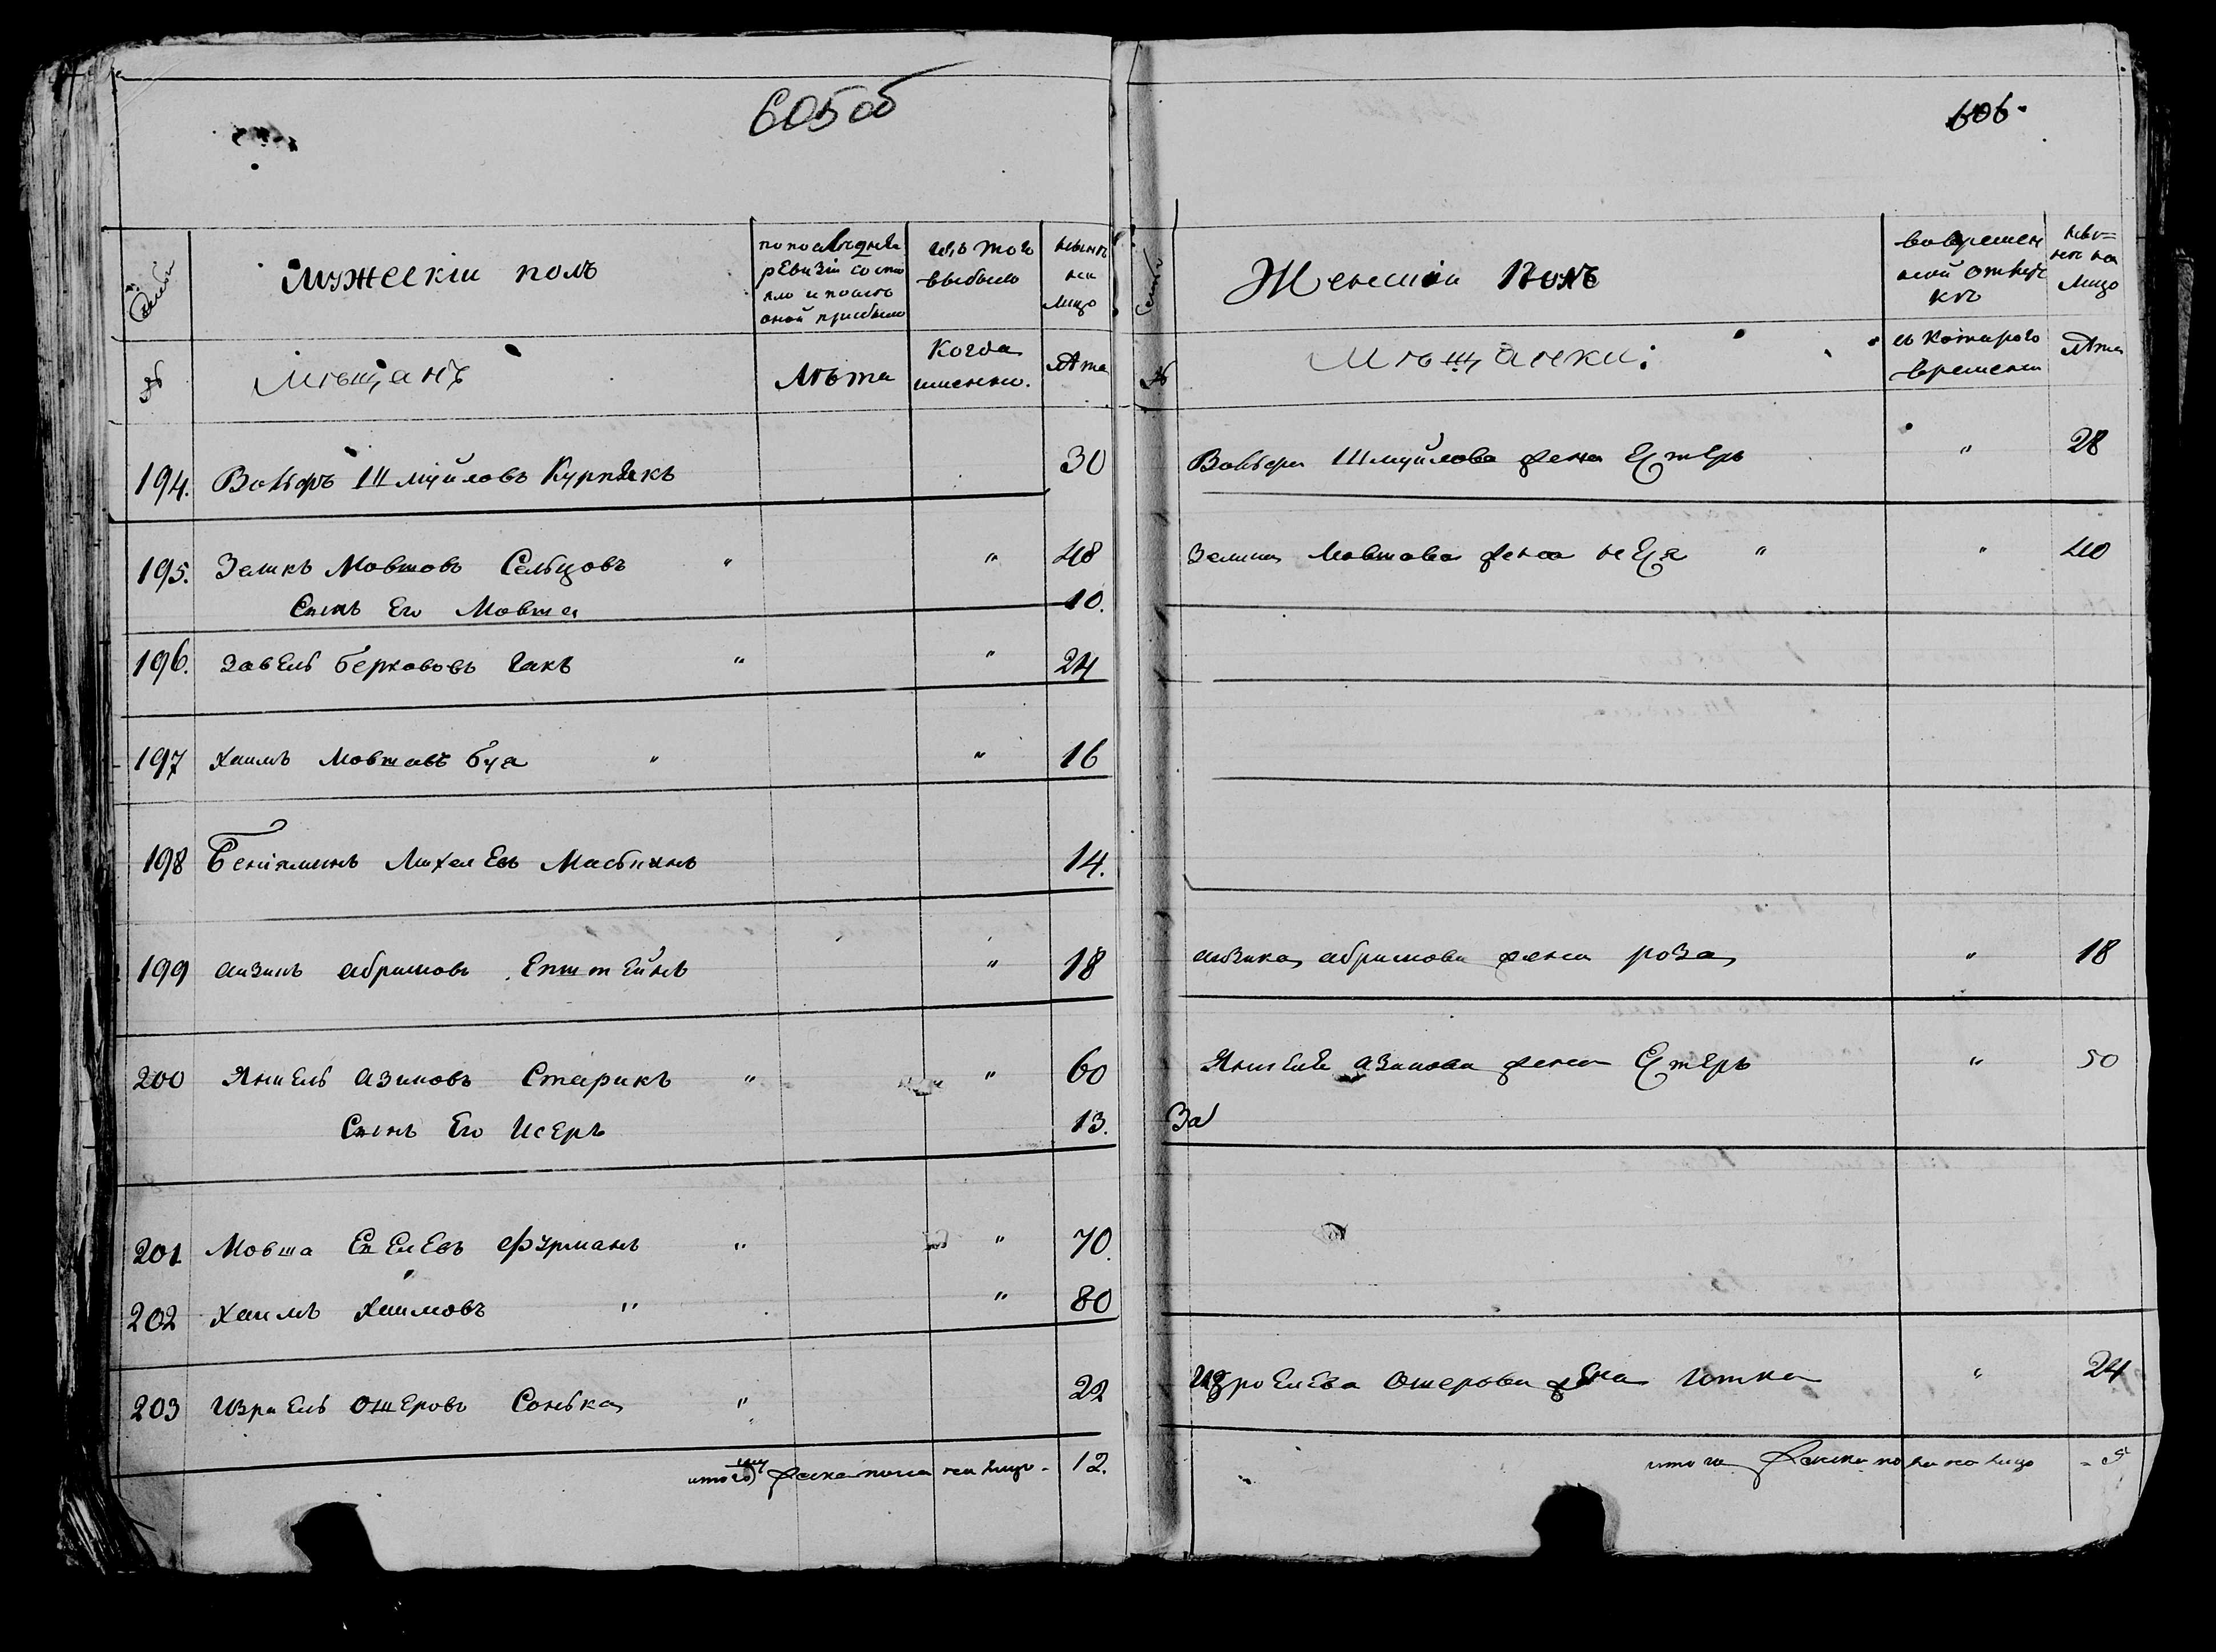 605 об
Семьи
Мужескiи полъ
по последней
ревизiи состо
яло и после
оной прибыло
изъ того
выбыло
ныне
на
лицо
№
Мѣщанъ
Лѣта
Когда
именно.
Лѣта
194. Вольфъ Шмуйловъ Курпякъ 30
195. Зеликъ Мовшовъ Сельцовъ " " 48
Сынъ Его Мовша 10.
196. Завель Беркововъ Гакъ " " 24
197 Хаимъ Мовшовъ Буя " " 16
198 Бенiяминъ Михелевъ 14.
199 Аизикъ Абрамовъ Епштейнъ " 18
200 Янкель Азиковъ Старикъ " " 60
Сынъ Его Исеръ 13.
201 Мовша Фурманъ " " 70.
202 Хаимъ Хаимовъ " " 80
203 Израель Ошеровъ Сонька " 22
итого муж пола на лицо - 12.
606.
Семьи
Женскiи полъ
во времен
ной отлуч
кѣ
ны=
не на
лицо
№
Мѣщански:
съ котораго
времени
Лѣта
Вольфа Шмуйлова жена Естеръ " 28
Зелика Мовшова жена " " 40
Аизика Абрамова жена Роза " 18
Янкеля Азикова жена Естеръ " 50
За
Израелева Ошерова жена Готка " 24
итого женска пола на лицо - 5